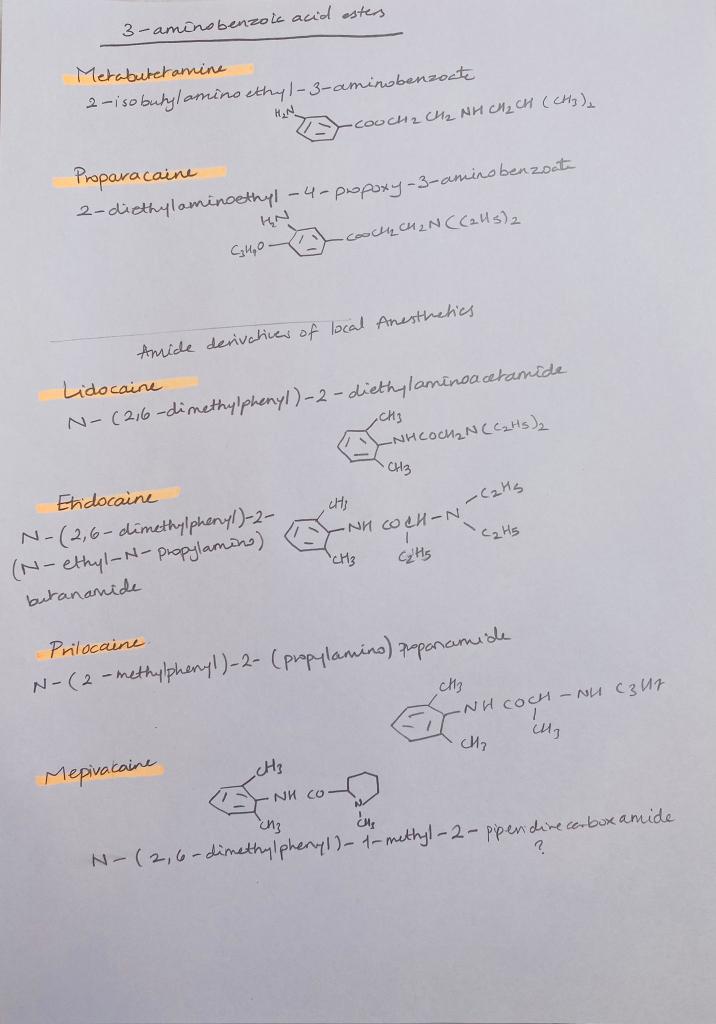 3-aminobenzoic acid esters
Metabutetamine
2-isobutylaminoethyl-3-aminobenzoate
H2N
COOCH2 CH2 NH CH2CH (CH3)2
Proparacaine
2-diethylaminoethyl-4-propoxy-3-aminobenzoate
H2N
C3H7O
COOCH2 CH2N(C2H5)2
Amide derivatives of local Anesthetics
Lidocaine
N-(2,6-dimethylphenyl)-2-diethylaminoacetamide
CH3
NHCOCH2N(C2H5)2
CH3
Etidocaine
N-(2,6-dimethylphenyl)-2-
(N-ethyl-N-propylamino)
butanamide
CH3
NH COCH-N
C2H5
C2H5
CH3
C2H5
Prilocaine
N-(2-methylphenyl)-2-(propylamino) propanamide
CH3
NH COCH-NH C3H7
CH3
CH3
Mepivacaine
CH3
NH CO
N
CH3
CH3
N-(2,6-dimethylphenyl)-1-methyl-2-piperidine carboxamide
?